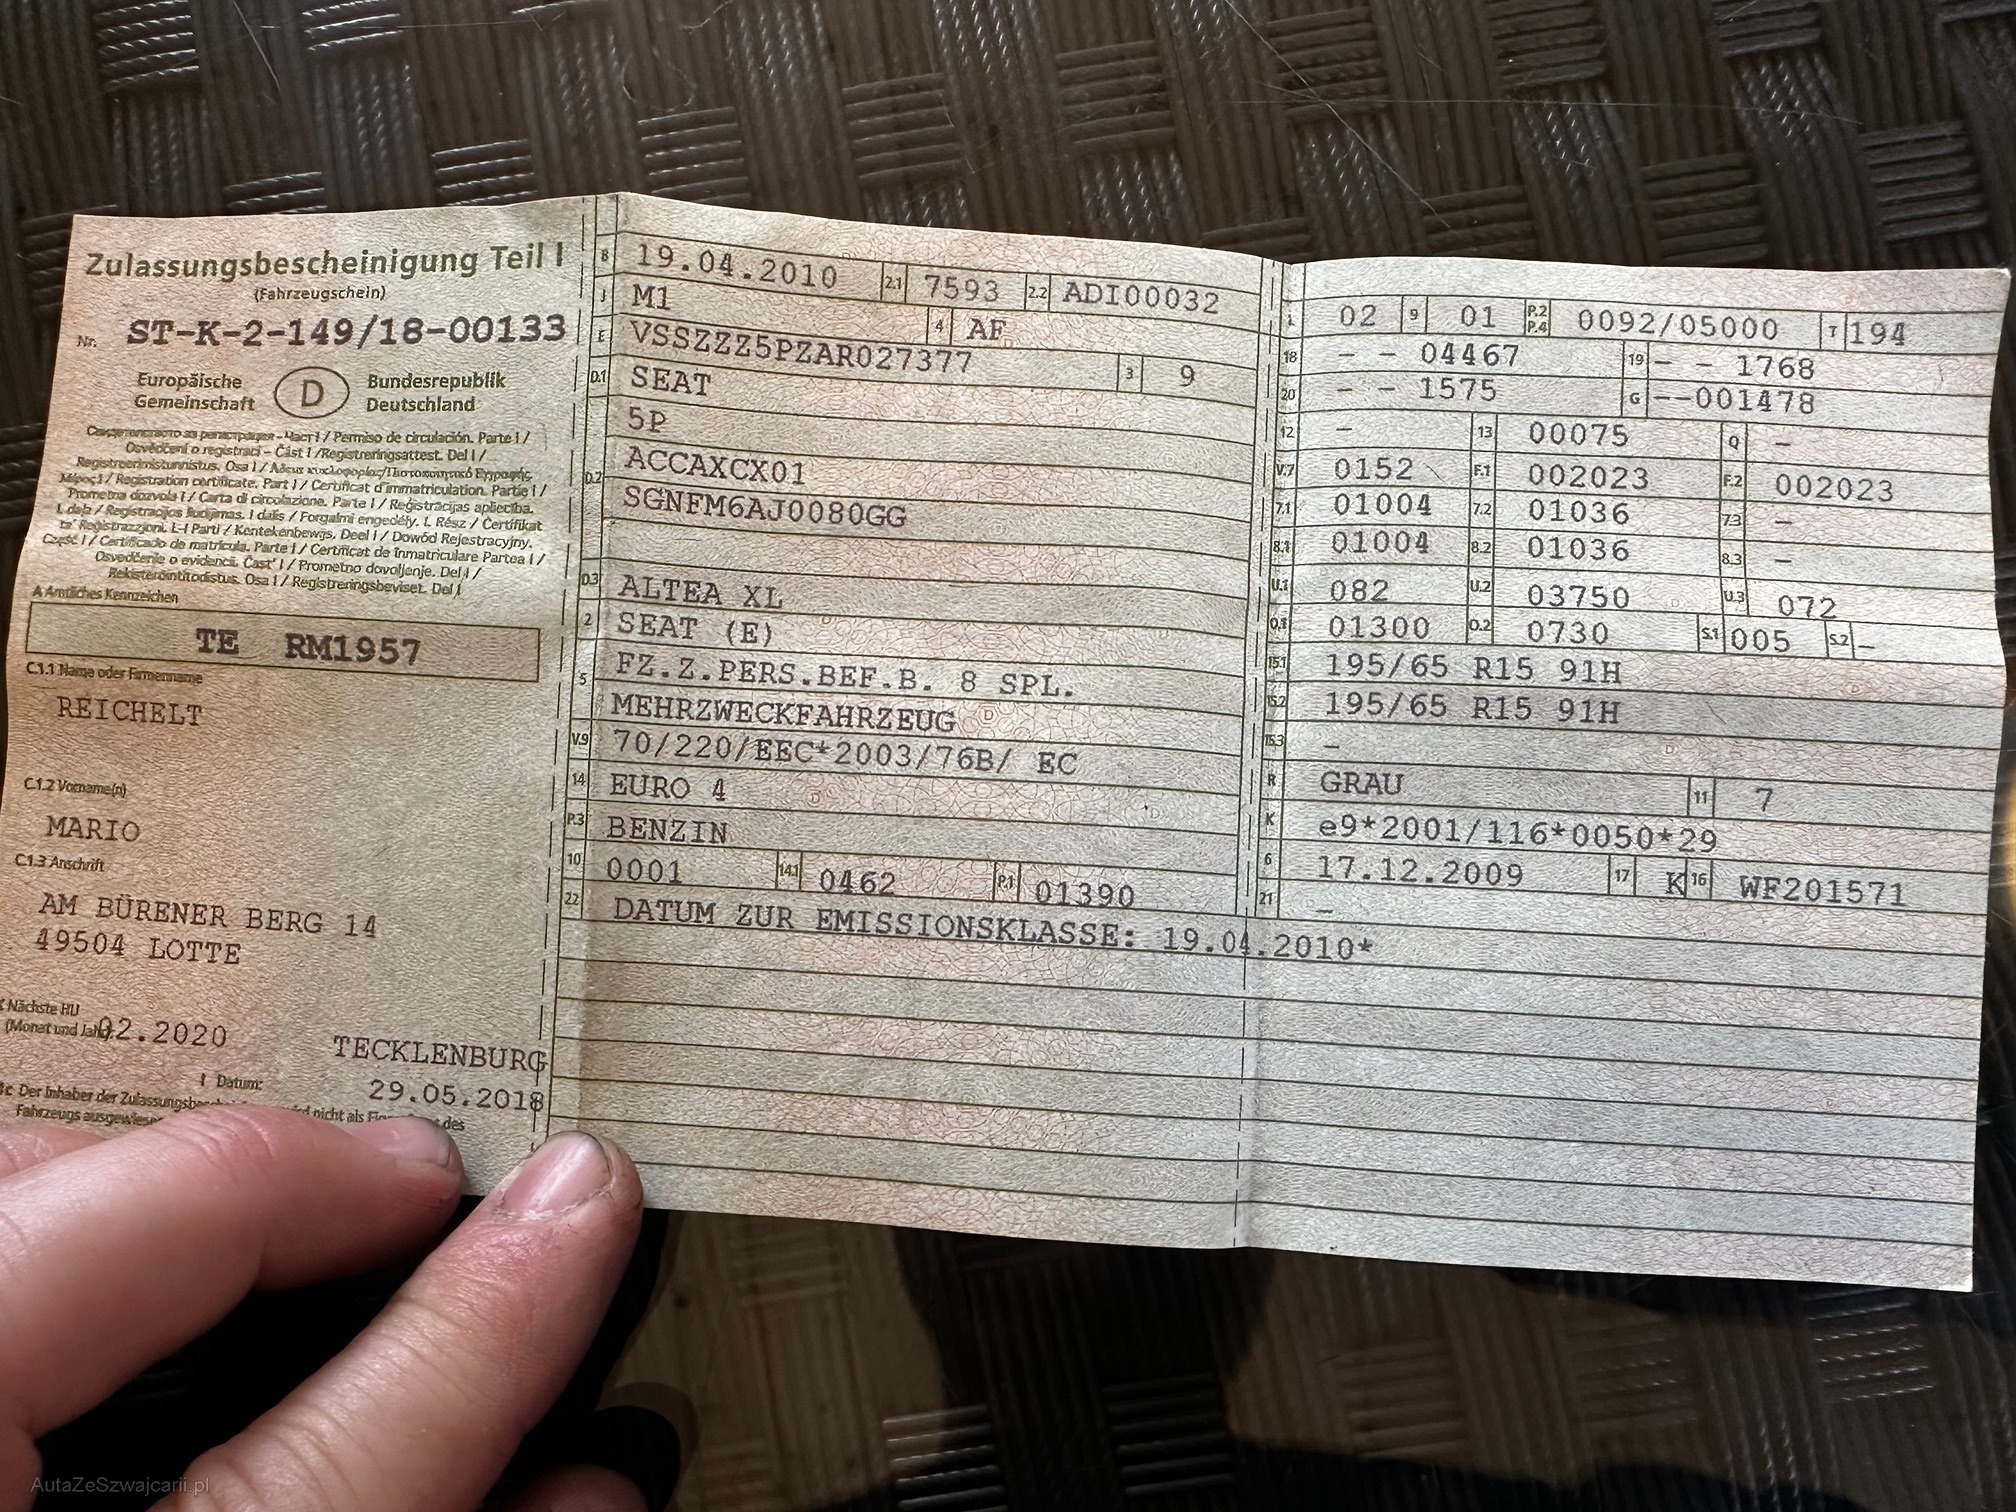 Zulassungsbescheinigung Teil I
(Fahrzeugschein)
Nr. ST-K-2-149/18-00133
Europäische Gemeinschaft
D
Bundesrepublik Deutschland
/ Permiso de circulación. Parte I /
Osvědčení o registraci – Část I / Registreringsattest. Del I /
Registreerimistunnistus. Osa I /
/ Registration certificate. Part I / Certificat d'immatriculation. Partie I /
Prometna dozvola I / Carta di circolazione. Parte I / Reģistrācijas apliecība.
I. daļa / Registracijos liudijimas. I dalis / Forgalmi engedély. I. Rész / Ċertifikat
ta' Reġistrazzjoni. L-I Parti / Kentekenbewijs. Deel I / Dowód Rejestracyjny.
Część I / Certificado de matrícula. Parte I / Certificat de înmatriculare Partea I /
Osvedčenie o evidencii. Časť I / Prometno dovoljenje. Del I /
Rekisteröintitodistus. Osa I / Registreringsbeviset. Del I
A Amtliches Kennzeichen
TE RM1957
C.1.1 Name oder Firmenname
REICHELT
C.1.2 Vorname(n)
MARIO
C.1.3 Anschrift
AM BÜRENER BERG 14
49504 LOTTE
Nächste HU
(Monat und Jahr) 02.2020
TECKLENBURG
I Datum:
29.05.2018
Der Inhaber der
nicht als
des
Fahrzeugs
B 19.04.2010 2.1 7593 2.2 ADI00032
J M1 4 AF
E VSSZZZ5PZAR027377 3 9
D.1 SEAT
5P
D.2 ACCAXCX01
SGNFM6AJ0080GG
D.3 ALTEA XL
2 SEAT (E)
5 FZ.Z.PERS.BEF.B. 8 SPL.
MEHRZWECKFAHRZEUG
V.9 70/220/EEC*2003/76B/ EC
14 EURO 4
P.3 BENZIN
10 0001 14.1 0462 P.1 01390
22 DATUM ZUR EMISSIONSKLASSE: 19.04.2010*
L 02 9 01 P.2 P.4 0092/05000 T 194
18 - - 04467 19 - - 1768
20 - - 1575 G --001478
12 - 13 00075 Q -
V.7 0152 F.1 002023 F.2 002023
7.1 01004 7.2 01036 7.3 -
8.1 01004 8.2 01036 8.3 -
U.1 082 U.2 03750 U.3 072
O.1 01300 O.2 0730 S.1 005 S.2 -
15.1 195/65 R15 91H
15.2 195/65 R15 91H
15.3 -
R GRAU 11 7
K e9*2001/116*0050*29
6 17.12.2009 17 K 16 WF201571
21 -
AutaZeSzwajcarii.pl